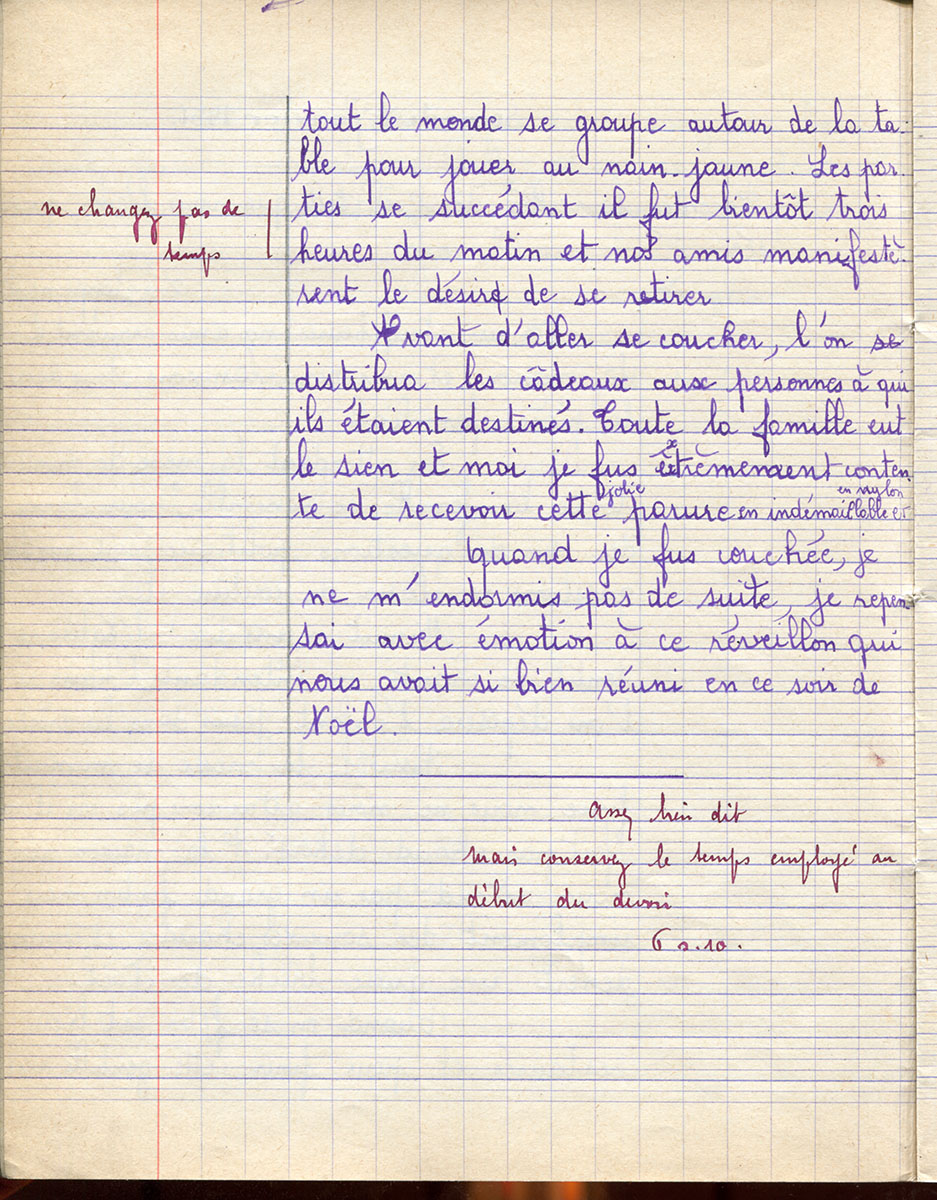 tout le monde se groupe autour de la ta-
ble pour jouer au nain-jaune. Les par-
ne changez pas de
temps
ties se succédant il fut bientôt trois
heures du matin et nos amis manifestè-
rent le désir de se retirer
Avant d'aller se coucher, l'on se
distribua les câdeaux aux personnes à qui
ils étaient destinés. Toute la famille eut
le sien et moi je fus extrêmement conten-
jolie en nylon
te de recevoir cette parure en indémaillable et
quand je fus couchée, je
ne m'endormis pas de suite, je repen-
sai avec émotion à ce réveillon qui
nous avait si bien réuni en ce soir de
Noël.
Assez bien dit
mais conservez le temps employé au
début du devoir
6 s. 10.